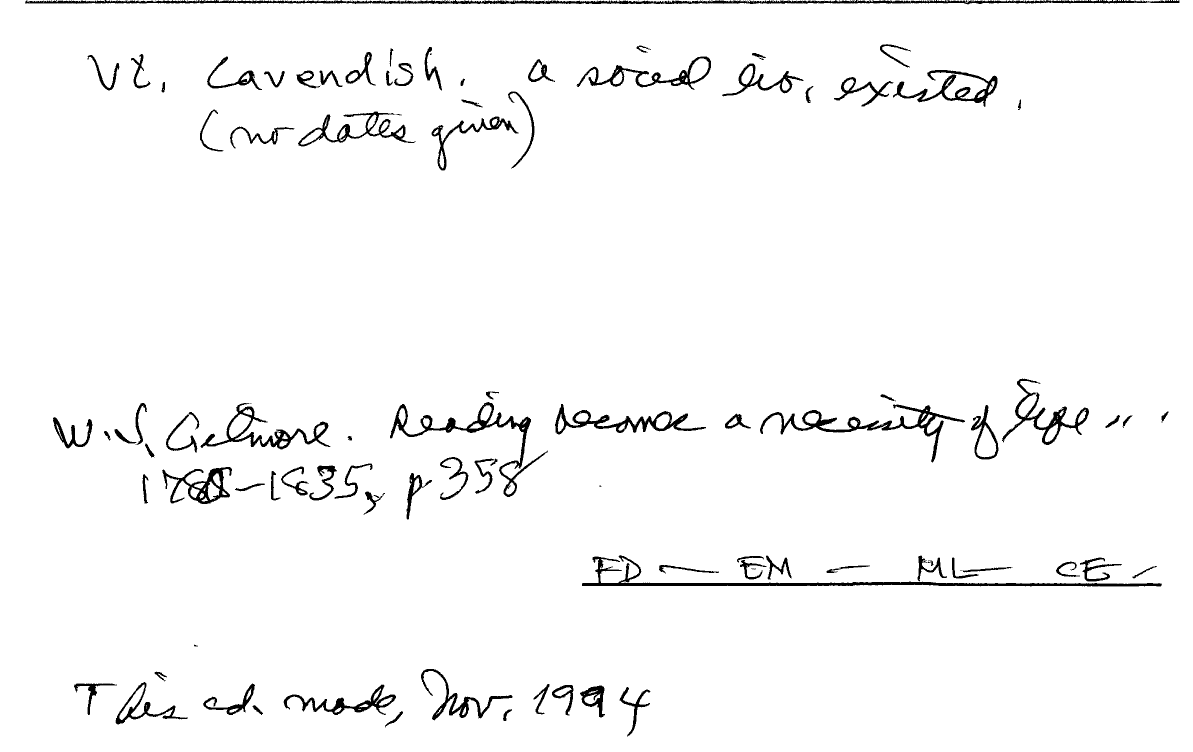 Vt. Cavendish. a social lib. existed.
(no dates given)
W.J. Gilmore. Reading becomes a necessity of life ...
1780-1835, p 358
FD — EM — ML — CE —
This cd. made, Nov. 1994